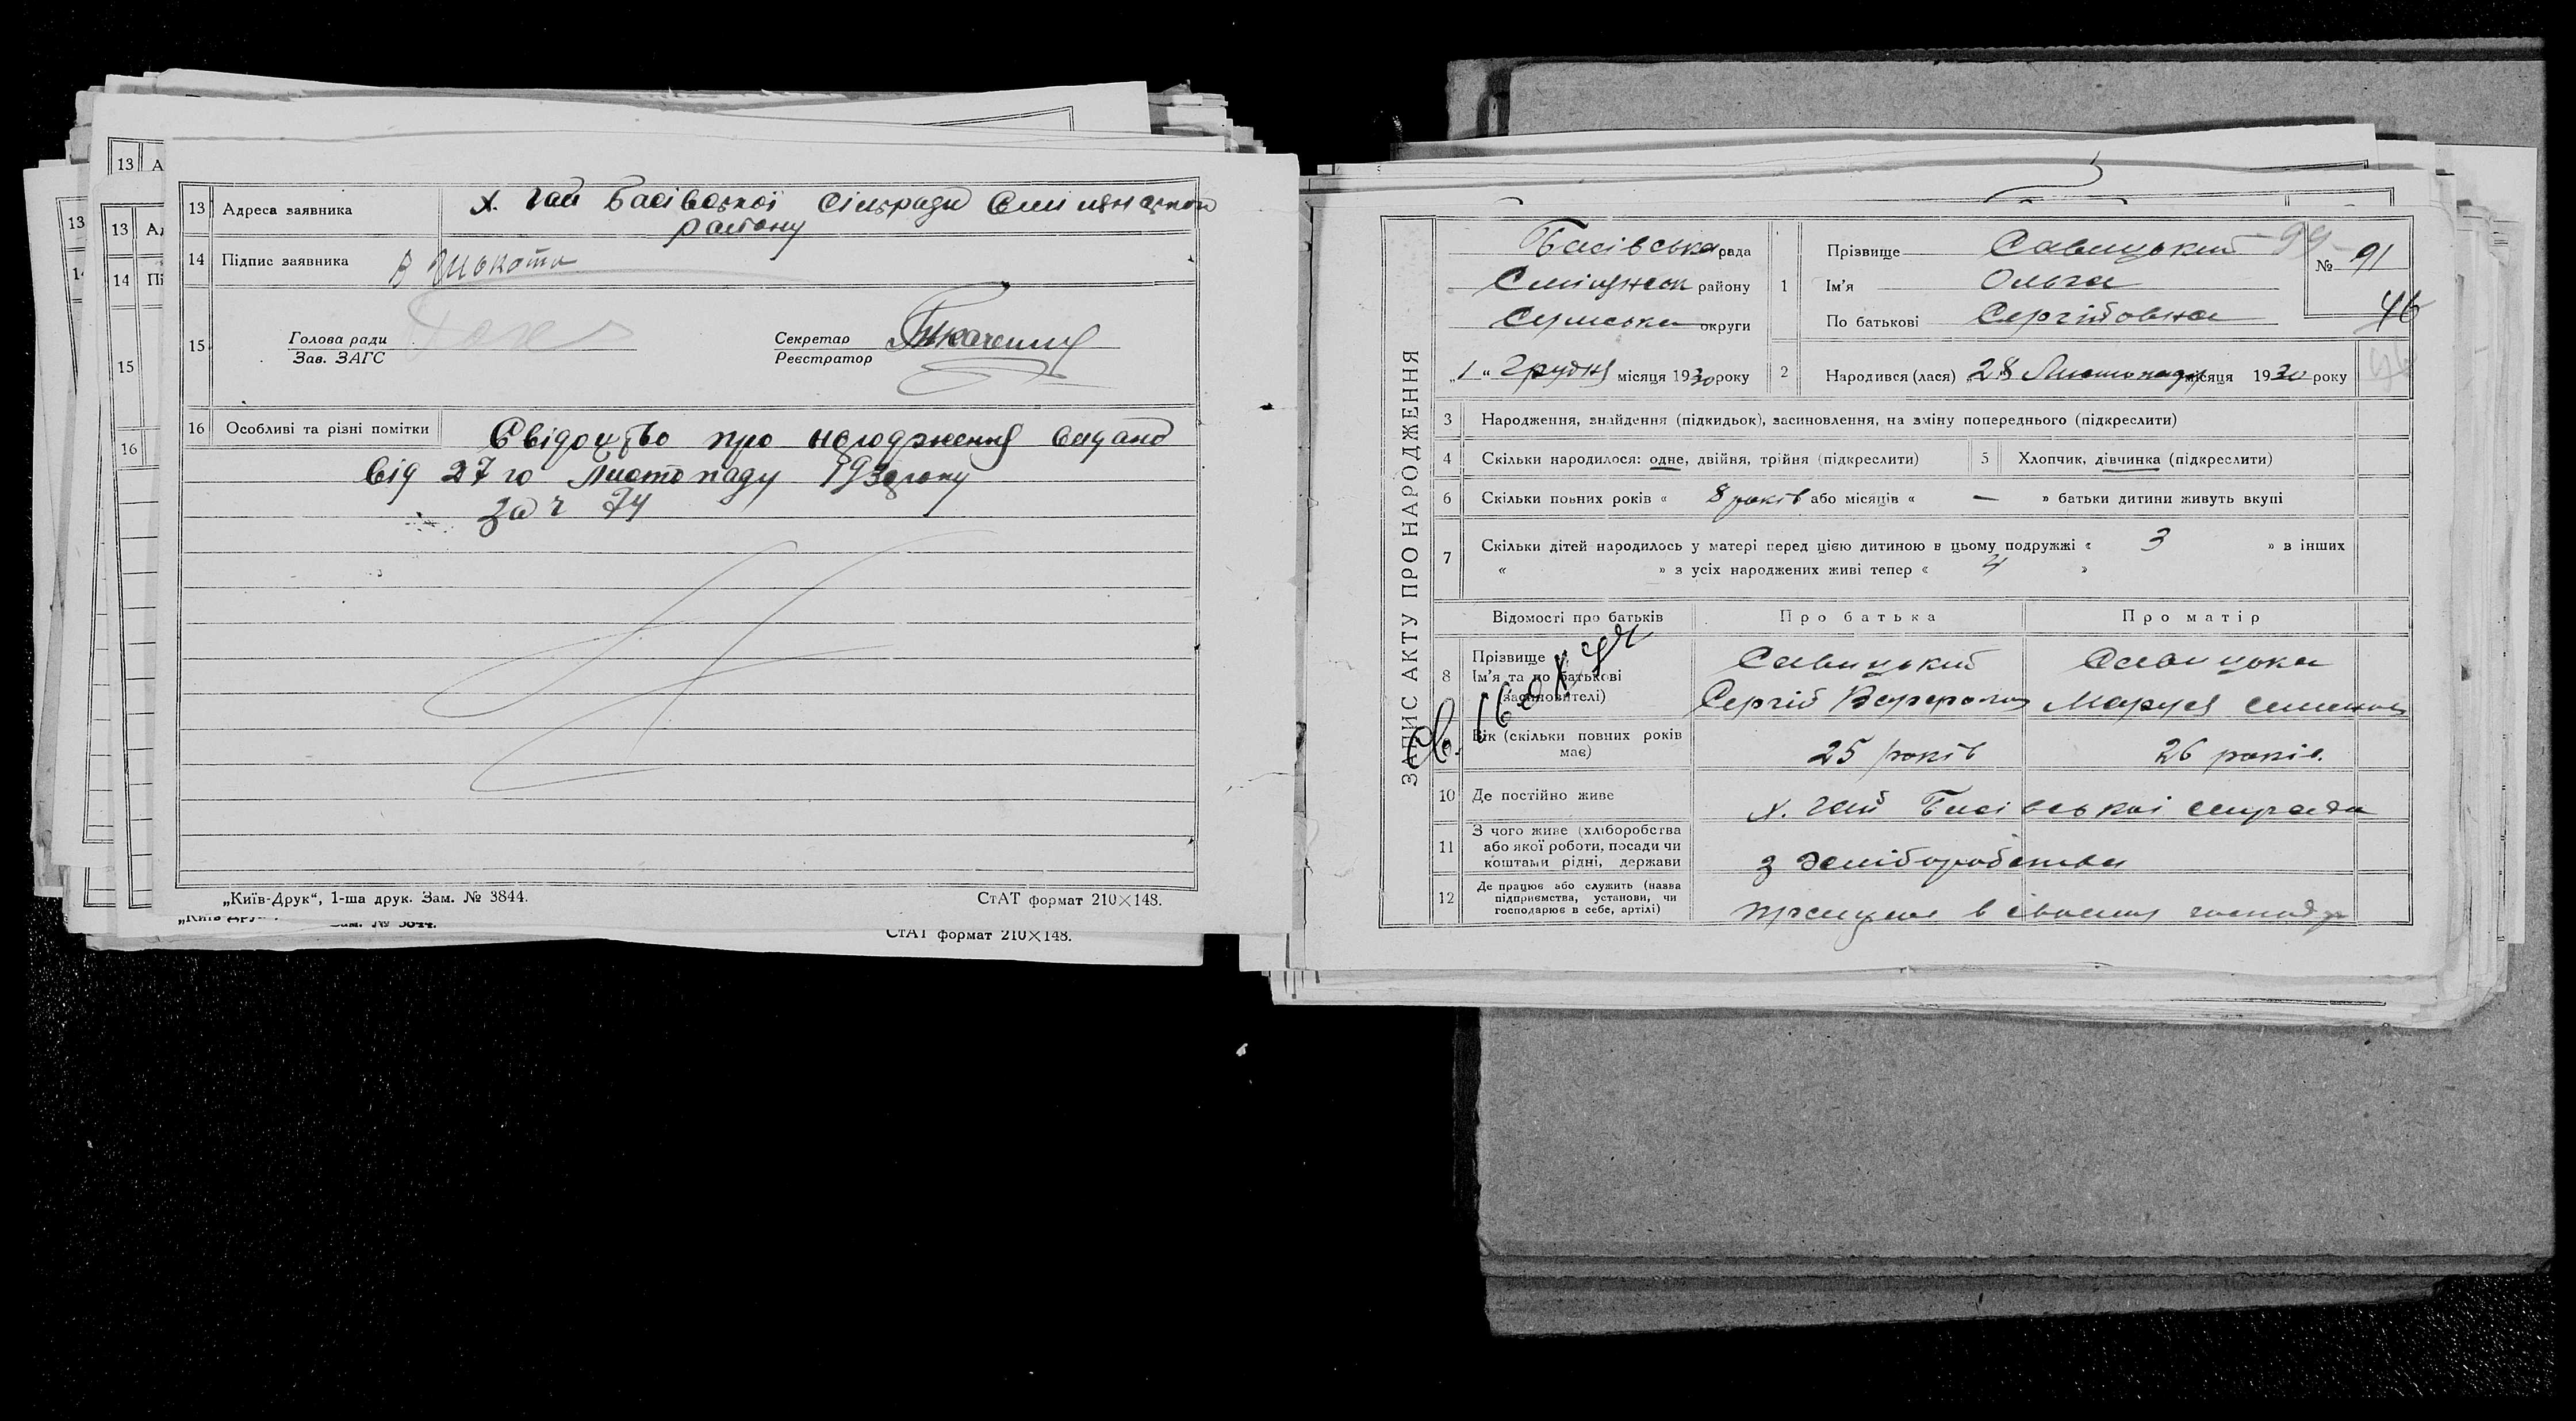 13 Адреса заявника х. Гай Басівської сільради
району
14 Підпис заявника
15 Голова ради
Зав. ЗАГС
Секретар Ткаченко
Реєстратор
16 Особливі та різні помітки Свідоцтво про народження видано
від 27 го Листопаду 1930 року
за ч 74
„Київ-Друк“, 1-ша друк. Зам. № 3844. СтАТ формат 210×148.
СтАТ формат 210×148.
ЗАПИС АКТУ ПРО НАРОДЖЕННЯ
Басівська рада
району
Сумська округи
„1“ Грудня місяця 1930 року
1 Прізвище Савицький 99
Ім'я Ольга
По батькові Сергійовна
№ 91
46
2 Народився (лася) 28 Листопаду місяця 1930 року
3 Народження, знайдення (підкидьок), засиновлення, на зміну попереднього (підкреслити)
4 Скільки народилося: одне, двійня, трійня (підкреслити) 5 Хлопчик, дівчинка (підкреслити)
6 Скільки повних років « 8 років або місяців « — » батьки дитини живуть вкупі
7 Скільки дітей народилось у матері перед цією дитиною в цьому подружжі « 3 » в інших
« » з усіх народжених живі тепер « 4 »
Відомості про батьків Про батька Про матір
8 Прізвище
Ім'я та по батькові
(засиновителі)
Савицький
Сергій
Савицька
Маруся
Вік (скільки повних років має) 25 років 26 років.
10 Де постійно живе х. Гай Басівської сільради
11 З чого живе (хліборобства або якої роботи, посади чи коштами рідні, держави з хліборобства
12 Де працює або служить (назва підприємства, установи, чи господарює в себе, артілі) працює в своєму господ